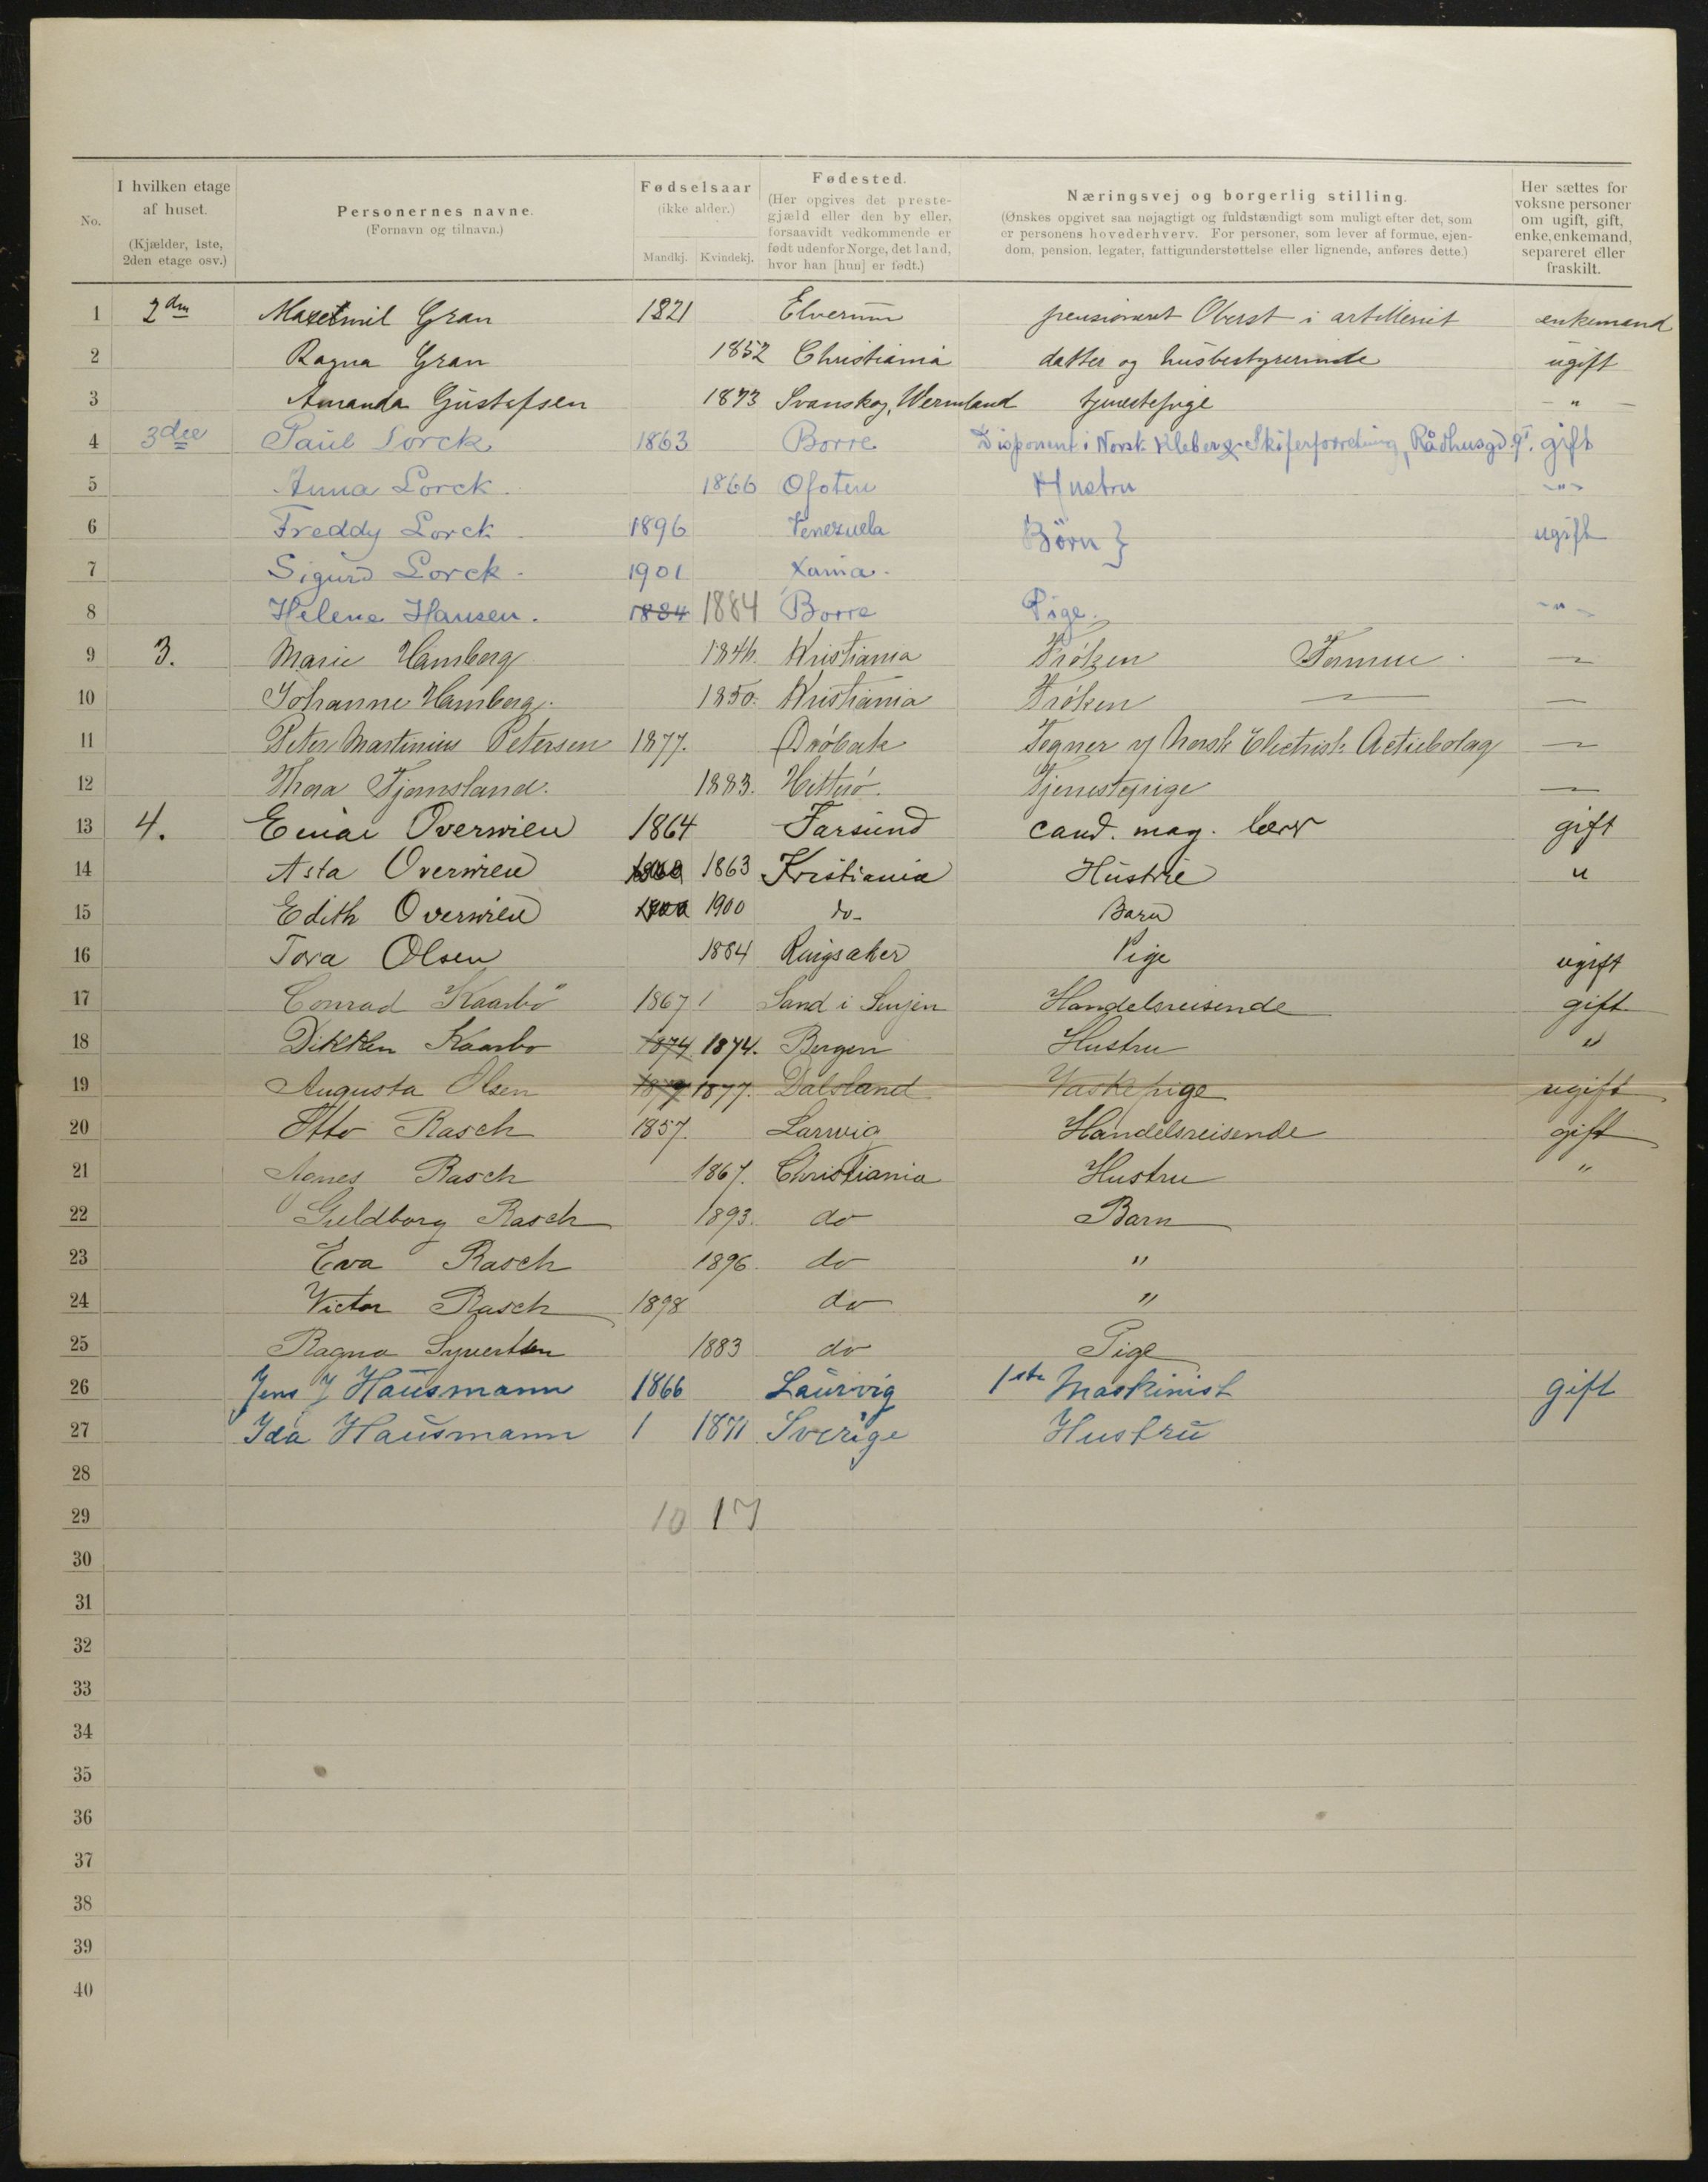 No.
I hvilken etage af huset.
(Kjælder, 1ste, 2den etage osv.)
Personernes navne.
(Fornavn og tilnavn.)
Fødselsaar
(ikke alder.)
Mandkj. Kvindekj.
Fødested.
(Her opgives det prestegjæld eller den by eller, forsaavidt vedkommende er født udenfor Norge, det land, hvor han [hun] er født.)
Næringsvej og borgerlig stilling.
(Ønskes opgivet saa nøjagtigt og fuldstændigt som muligt efter det, som er personens hovederhverv. For personer, som lever af formue, ejendom, pension, legater, fattigunderstøttelse eller lignende, anføres dette.)
Her sættes for voksne personer om ugift, gift, enke, enkemand, separeret eller fraskilt.
1 2den Gran 1821 Elverum pensioneret Oberst i artilleriet enkemand
2 Ragna Gran 1852 Christiania datter og husbestyrerinde ugift
3 Amanda Gustafsen 1873 Svanskog, Wermland tjenestepige - " -
4 3die Paul Lorck 1863 Borre Disponent i Norsk Kleber & Skiferforretning, Rådhusgd. 9I. gift
5 Anna Lorck. 1866 Ofoten Hustru - " -
6 Freddy Lorck 1896 Venezuela Børn } ugift
7 Sigurd Lorck. 1901 Xania.
8 Helene Hansen. 1884 1884 Borre Pige. - " -
9 3. Marie Hamborg 1846. Kristiania Frøken Formue. —
10 Johanne Hamborg. 1850. Kristiania Frøken — —
11 Peter Martinius Petersen 1877. Drøbak Tegner v/ Norsk Electrisk Actiebolag —
12 Thora Tjomsland. 1883. Hitterø. Tjenestepige —
13 4. Einar Overwien 1864 Farsund cand. mag. lærer gift
14 Asta Overwien 1863 Kristiania Hustrue "
15 Edith Overwien 1900 1900 do- Barn
16 Tora Olsen 1884 Ringsaker Pige ugift
17 Conrad Kaarbö 1867 1 Sand i Senjen Handelsreisende gift
18 Dikken Kaarbo 1874 1874. Bergen Hustru "
19 Augusta Olsen 1877 1877. Dalsland Vaskepige ugift
20 Otto Rasch 1857. Larvig Handelsreisende gift
21 Agnes Rasch 1867. Christiania Hustru "
22 Guldborg Rasch 1893. do Barn
23 Eva Rasch 1896. do "
24 Victor Rasch 1898 do "
25 Ragna Syvertsen 1883 do Pige
26 Jens J Hausmann 1866 Laurvig 1ste Maskinist gift
27 Ida Hausmann 1 1871 Sverige Hustru
28
29 10 17
30
31
32
33
34
35
36
37
38
39
40